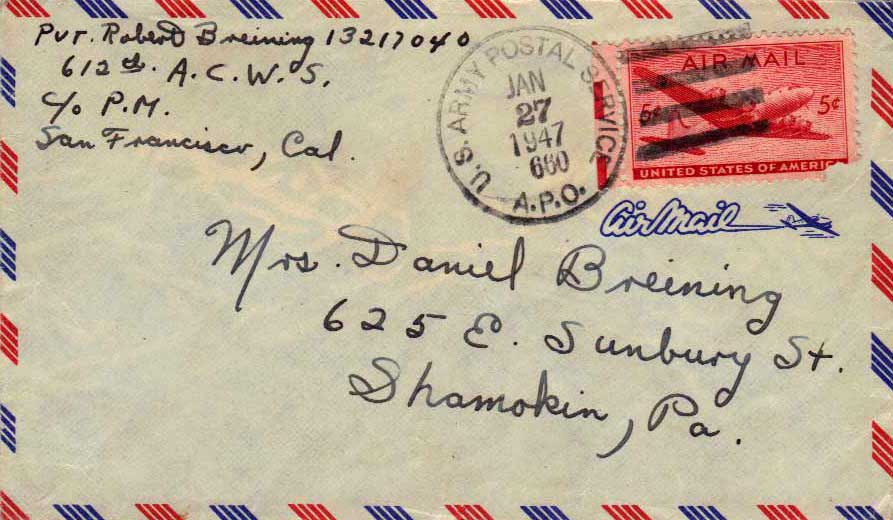 Pvt. Robert Breining 13217040
612th. A.C.W.S.
c/o P.M.
San Francisco, Cal.
U.S. ARMY POSTAL SERVICE
JAN
27
1947
660
A.P.O.
AIR MAIL
5¢ 5¢
UNITED STATES OF AMERICA
Air Mail
Mrs. Daniel Breining
625 E. Sunbury St.
Shamokin, Pa.